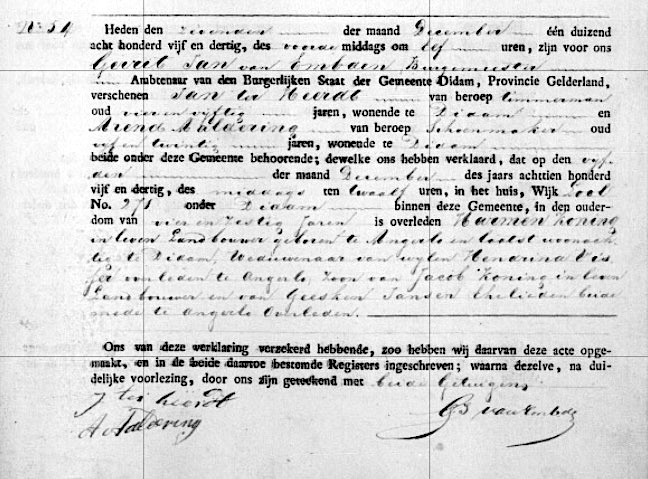 No. 54
Heden den zevenden der maand December één duizend
acht honderd vijf en dertig, des voorde middags om elf uren, zijn voor ons
Gerrit Jan van Embden Burgemeester
Ambtenaar van den Burgerlijken Staat der Gemeente Didam, Provincie Gelderland,
verschenen Jan ter Heerdt van beroep timmerman
oud vier en vyftig jaren, wonende te Didam en
Arend Aaldering van beroep Schoenmaker oud
vyf en twintig jaren, wonende te Didam
beide onder deze Gemeente behoorende; dewelke ons hebben verklaard, dat op den vyf-
den der maand December des jaars achttien honderd
vijf en dertig, des middags ten twaalf uren, in het huis, Wijk Lool
No. 271 onder Didam binnen deze Gemeente, in den ouder-
dom van vier en zestig Jaren is overleden Harmen Koning
in leven Landbouwer geboren te Angerlo en laatst woonach-
tig te Didam, Weduwenaar van wylen Hendrina Vis-
ser overleden te Angerlo, Zoon van Jacob Koning in leven
Landbouwer en van Geesken Jansen Ehelieden beide
mede te Angerlo Overleden.
Ons van deze verklaring verzekerd hebbende, zoo hebben wij daarvan deze acte opge-
maakt, en in de beide daartoe bestemde Registers ingeschreven; waarna dezelve, na dui-
delijke voorlezing, door ons zijn geteekend met beide Getuigens
J ter heerdt
A Aaldering
GJ van Embden